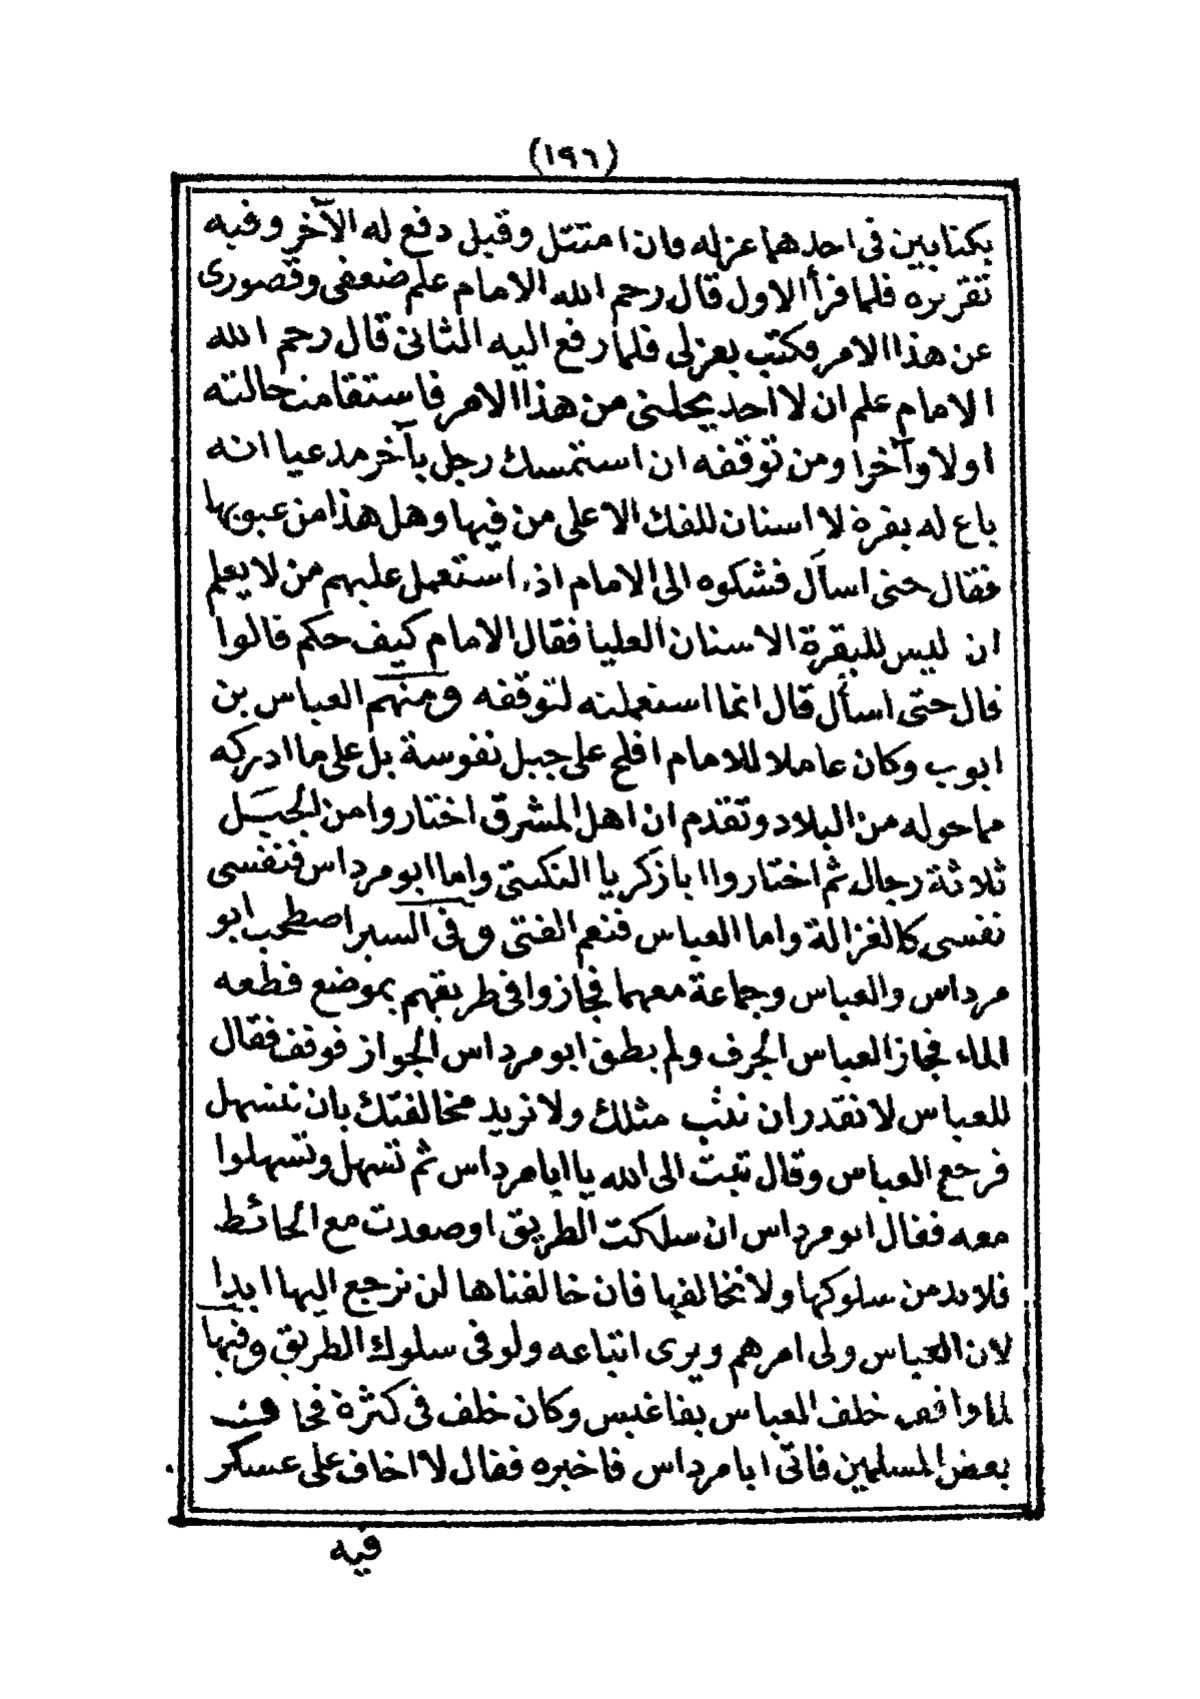 (١٩٦)
بكتابين في احدهما عزله وان امتثل وقبل دفع له الآخر وفيه
تقريره فلما قرأ الاول قال رحم الله الامام علم ضعفى وقصورى
عن هذا الامر فكتب بعزلى فلما رفع اليه الثانى قال رحم الله
الامام علم ان لا احد يحملنى من هذا الامر فاستقامت حالته
اولا وآخرا ومن توقفه ان استمسك رجل بآخر مدعيا انه
باع له بقرة لا اسنان للفك الاعلى من فيها وهل هذا من عيوبها
فقال حتى اسأل فشكوه الى الامام اذ استعمل عليهم من لا يعلم
ان ليس للبقرة الاسنان العليا فقال الامام كيف حكم قالوا
قال حتى اسأل قال انما استعملته لتوقفه ومنهم العباس بن
ايوب وكان عاملا للامام افلح على جبل نفوسة بل على ما ادركه
مما حوله من البلاد وتقدم ان اهل المشرق اختاروا من الجبل
ثلاثة رجال ثم اختاروا ابا زكريا التكستى واما ابو مرداس فنفسى
نفسى كالغزالة واما العباس فنعم الفتى وفى السير اصطحب ابو
مرداس والعباس وجماعة معهما فجازوا في طريقهم بموضع قطعه
الماء فجاز العباس الجرف ولم يطق ابو مرداس الجواز فوقف فقال
للعباس لا نقدر ان نثب مثلك ولا نريد مخالفتك بان نتسهل
فرجع العباس وقال تبت الى الله يا ابا مرداس ثم تسهل وتسهلوا
معه فقال ابو مرداس ان سلكت الطريق او صعدت مع الحائط
فلا بد من سلوكها ولا نخالفها فان خالفناها لن نرجع اليها ابدا
لان العباس ولى امرهم ويرى اتباعه ولو فى سلوك الطريق وفيها
لما واقف خلف العباس بفاغيس وكان خلف في كثرة فخافت
بعض المسلمين فاتى ابا مرداس فاخبره فقال لا اخاف على عسكر
فيه